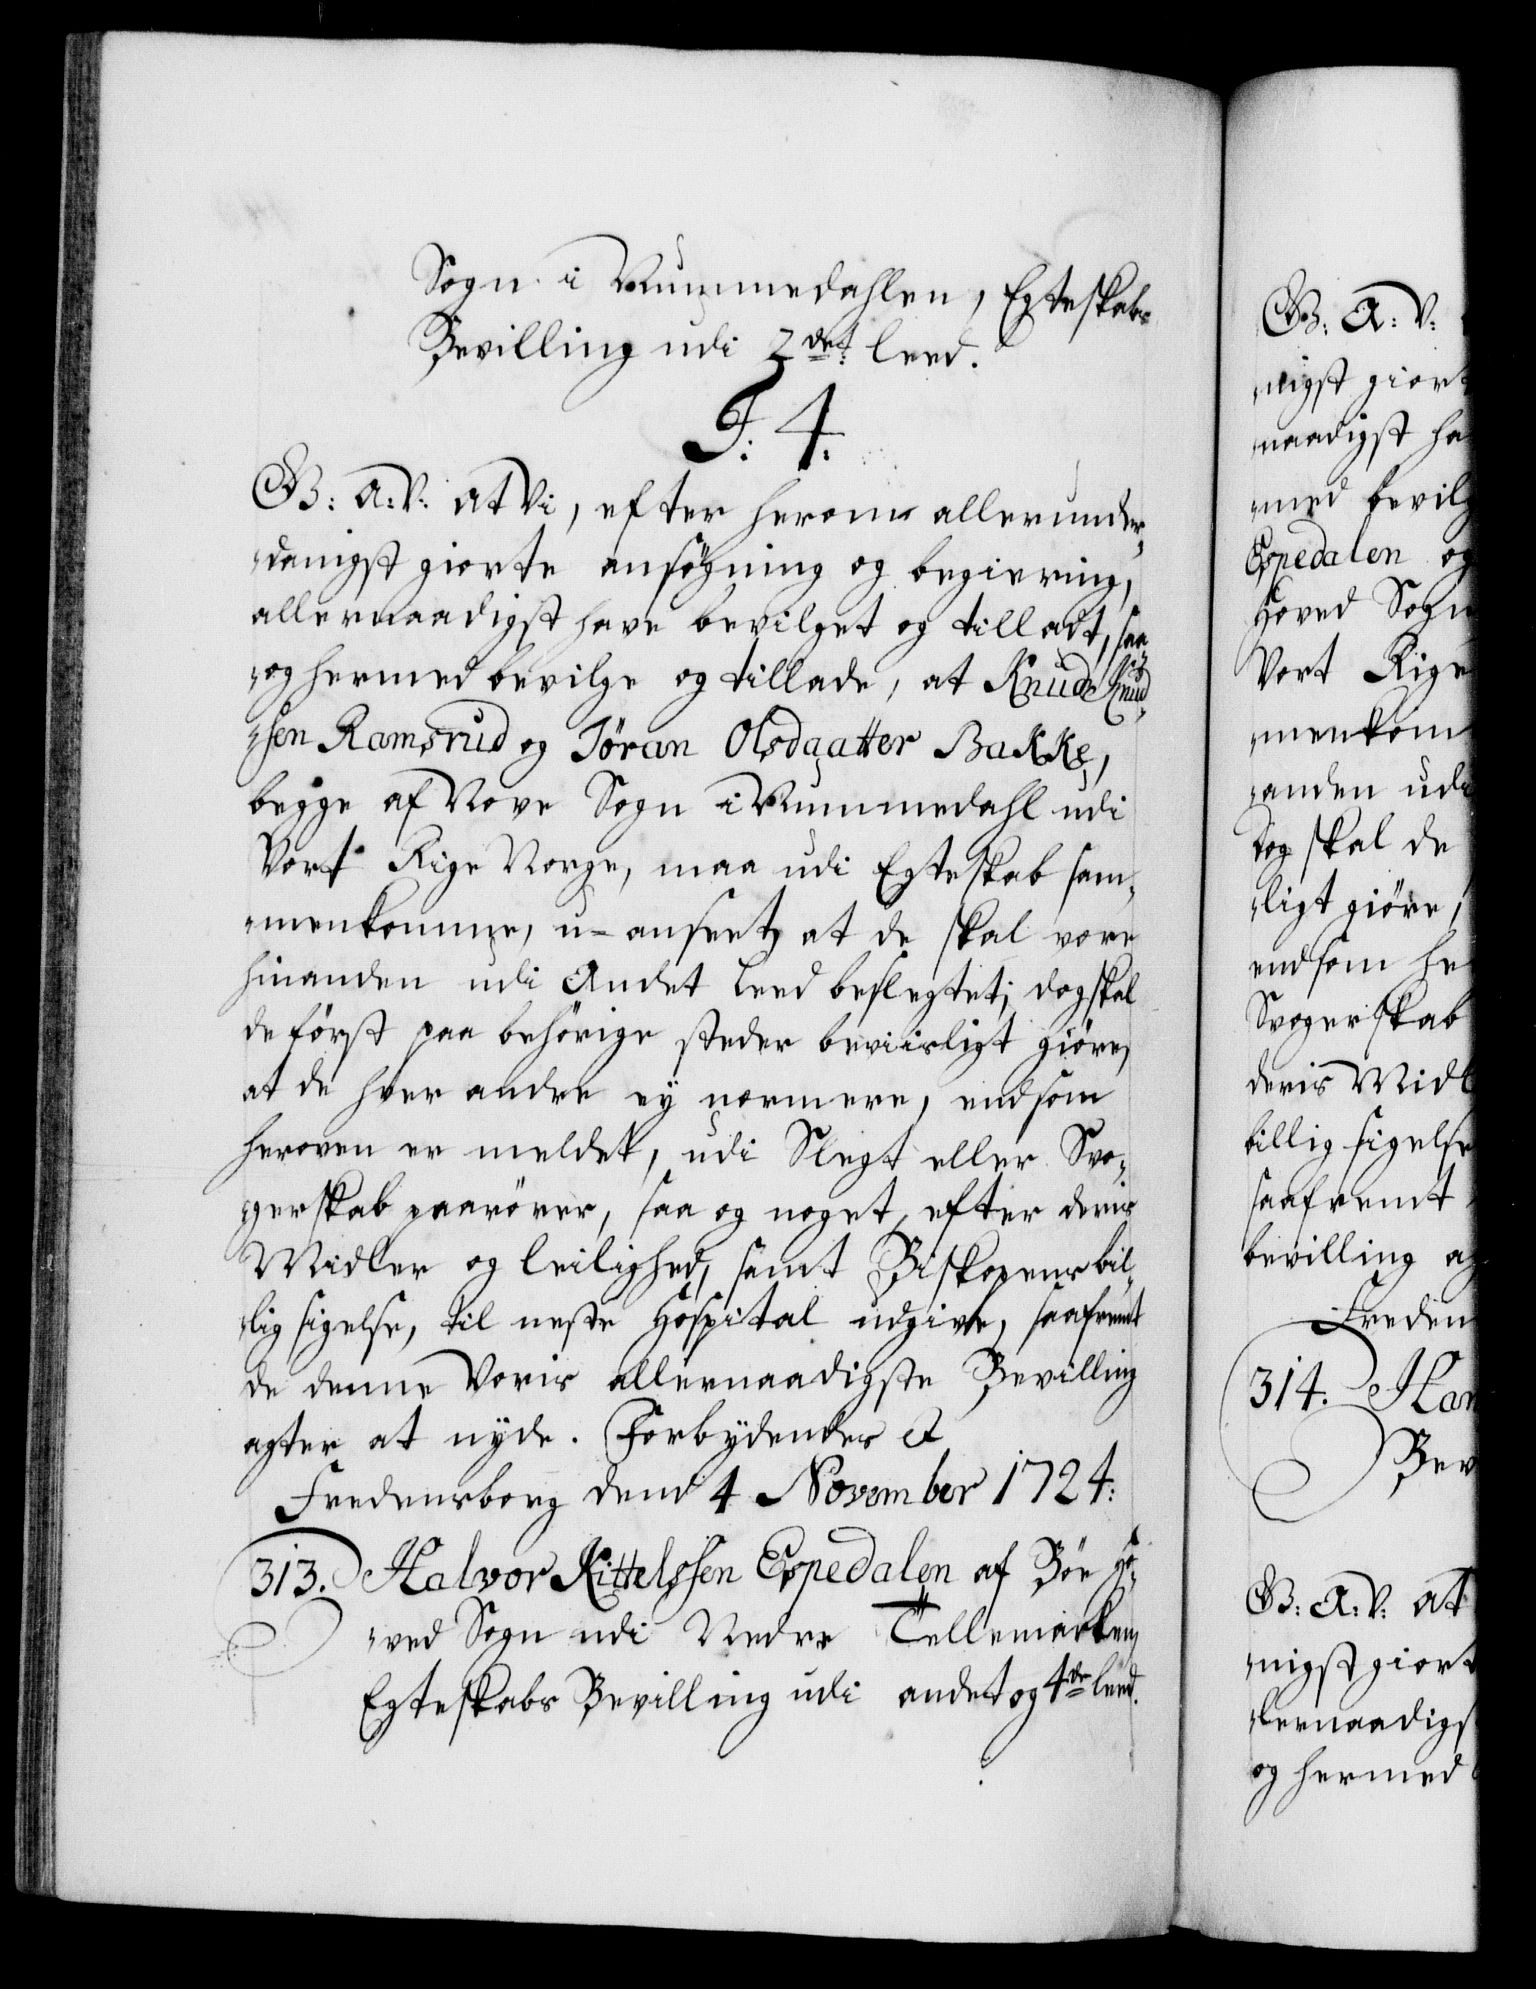 Sogn i Nummedahlen, Egteskabs
Bevilling udi 2det: leed.
F. 4.
G: A: V: at Vi, efter herom allerunder¬
danigst giorte ansøgning og begiering,
allernaadigst have bevilget og tilladt, saa
og hermed bevilge og tillade, at Knud Knud¬
sen Ramsrud og Jöran Olsdaatter Bakke,
begge af Nore Sogn i Nummedahl udi
Vort Rige Norge, maa udi Egteskab sam¬
menkomme, u-anseet, at de skal være
hinanden udi Andet Leed beslegtet; dog skal
de först paa behörige steder beviisligt giöre,
at de hver andre ey nærmere, end som
heroven er meldet, udi Slegt eller Svo¬
gerskab paarörer, saa og noget, efter deris
Midler og leilighed, samt Biskopens bil¬
lig sigelse, til neste Hospital udgive, saafremt
de denne Voris allernaadigste Bevilling
agter at nyde. Forbydendes &
Fredensborg dend 4 November 1724.
313. Halvor Kittelssen Espedalen af Böe Ho¬
ved Sogn udi Nedre Tellemarken,
Egteskabs Bevilling udi andet og 4de leed.
G: A: V:
nigst giort
naadigst ha
med bevilg
Espedalen og
Hoved Sogn
Vort Rige
menkom
anden udi
Dog skal de
ligt giöre,
end som he
Svogerskab
deris Midl
billig sigelse
saafremt
bevilling ag
Freden
314. Han
Bev
G: A: V: at
nigst giort
lernaadigs
og hermed